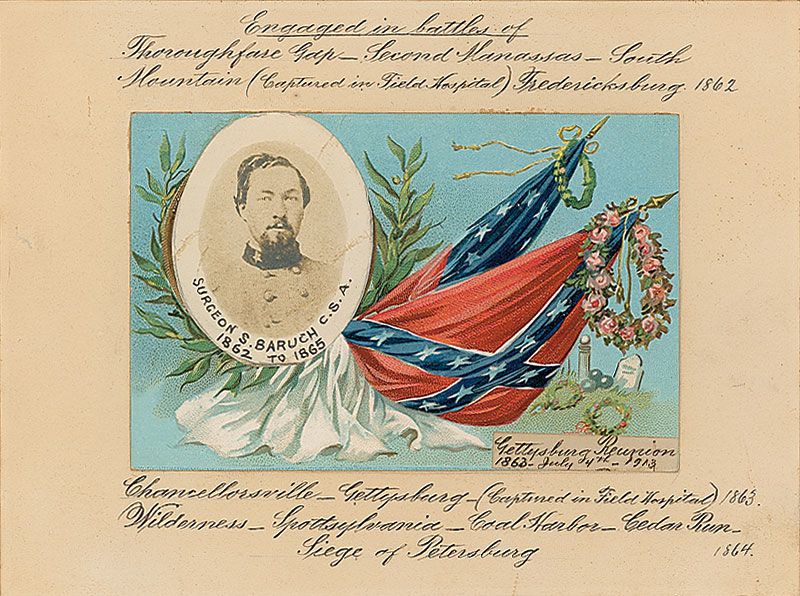 Engaged in battles of
Thoroughfare Gap – Second Manassas – South
Mountain (Captured in Field Hospital) Fredericksburg. 1862
SURGEON S. BARUCH C.S.A.
1862 TO 1865
Gettysburg Reunion
1863 - July 4th - 1913
Chancellorsville – Gettysburg – (Captured in Field Hospital) 1863.
Wilderness – Spottsylvania – Coal Harbor – Cedar Run –
Siege of Petersburg 1864.